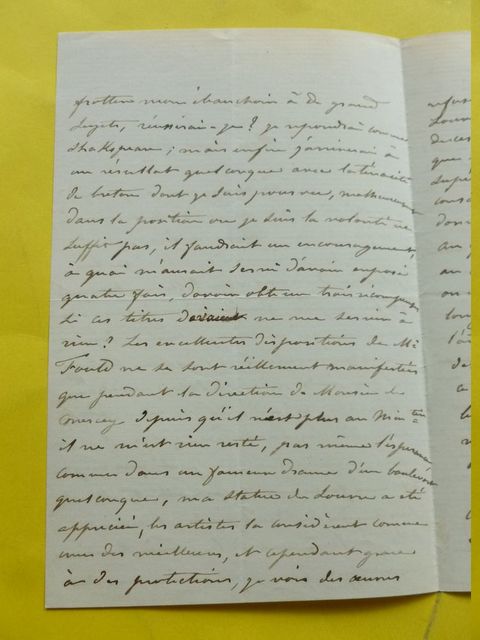 frotter mon ébauchoir à de grand
sujets, réussirai-je? je repondrai comme
Shakspeare; mais enfin j'arriverai à
un résultat quelconque avec la ténacité
de breton dont je suis pourvu, malheureusement
dans la position ou je suis la volonté ne
suffit pas, il faudrait un encouragement,
à quoi m'aurait servi d'avoir exposé
quatre fois, d'avoir obtenu trois récompenses
si ces titres devaient ne me servir à
rien? Les excellentes dispositions de Mr
Fould ne se sont réellement manifestées
que pendant la direction de Monsieur de
Mercey depuis qu'il n'est plus au Ministère
il ne m'est rien resté, pas même l'espérance
comme dans un fameux drame d'un boulevart
quelconque, ma statue du Louvre a été
appréciée, les artistes la considèrent comme
une des meilleures, et cependant grace
à des protections, je vois des œuvres
refus
Louvre
de ces
que
supé
cons
don
au
au
ou